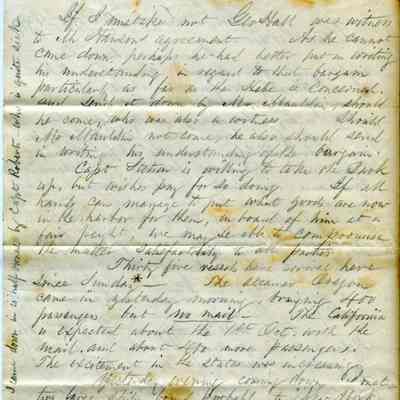 If I mistake not Geo Hall was witness
to Mr Hanson's agreement As he cannot
come down perhaps he had better put in writing
his understanding in regard to that bargain
particularly as far as the is concerned
and send it down by Mr Mauldin, should
he come, who was also a witness Should
Mr Mauldin not come, he also should send
in writing his understanding of the bargain.
Capt is willing to take the
up, but wishes pay for so doing If all
hands can manage to put what goods are now
in the harbor for them, on board of him at a
fair freight, we may be able to compromise
the matter satisfactorily to all parties
Thirty five vessels have arrived here
since Sunday* — The steamer Oregon
came in yesterday morning bringing 400
passengers but no mail — The California
is expected about the Oct. with the
mail and about 400 more passengers.
The excitement in the states was increasing
Yesterday evening coming home
two
I come down he is half owner by Capt Robert who is quite sick